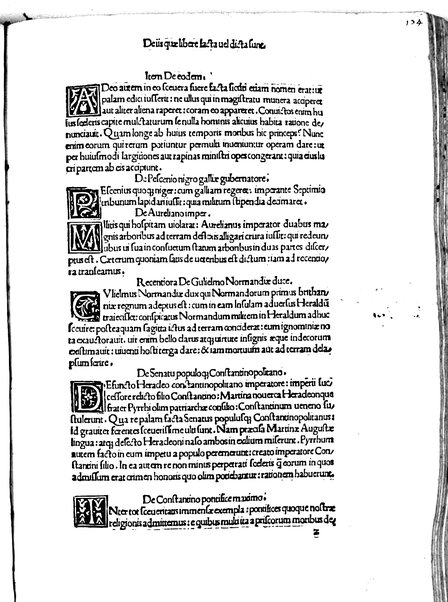 124
De iis quæ libere facta uel dicta sunt.
Item De eodem.
ADeo autem in eo seuera fuere facta siciti etiam nomen erat: ut
palam edici iusserit: ne ullus qui in magistratu munera acciperet
aut aliter aliena raperet: coram eo appareret. Conuictos enim hu
ius sceleris capite mulctaturum se nulla hominis alicuius habita ratione de
nunciauit. Quam longe ab huius temporis moribus hic princeps? Nunc
enim eorum qui rerum potiuntur permulti inueniuntur operam dare: ut
per huiusmodi largitiones aut rapinas ministri opes congerant: quia eius lu
cri partem ab eis accipiunt.
De Pescenio nigro galliæ gubernatore.
PEscenius quoque niger: cum galliam regeret: imperante Septimio
tribunum lapidari iussit: quia militum stipendia decimaret.
De Aureliano imper.
MIlitis qui hospitam uiolarat: Aurelianus imperator duabus ma
gnis arboribus ad terram deflexis alligari crura iussit: qui redeun
tibus ui sua in consuetum statum arboribus in duas partes discer
ptus est. Cæterum quoniam satis de ueteribus est dictum: iam ad recentio
ra transeamus.
Recentiora De Gulielmo Normandiæ duce.
GVlielmus Normandiæ dux qui Normandorum primus brithan
niæ regnum adeptus est: cum in eam Insulam aduersus Heraldum
traiecisset: conspicatus Normandum militem in Heraldum adhuc
seuire: postea quam sagitta ictus ad terram considerat: eum ignominiæ no
ta exauctorauit. uir enim bello clarus atque uirtute insignis æque indecorum
existimauit: uiuenti hosti terga dare: & iam mortuum aut ad terram dela
psum ferire.
De Senatu populoque Constantinopolitano.
DEfuncto Heracleo constantinopolitano imperatore: imperii suc
cessore relicto filio Constantino: Martina nouerca Heracleonque
frater Pyrrhi olim patriarchæ consilio: Constantinum ueneno su
stulerunt. Qua re palam facta Senatus populusque Constantinopolitanus:
id grauiter ferentes seuerissime ulti sunt. Nam præcisa Martinæ Augustæ
lingua: atque defecto Heracleoni naso ambos in exilium miserunt. Pyrrhum
autem facto in eum impetu a populo peremerunt: creato imperatore Con
stantini filio. In ea autem re non minus perpetrati sceleris q̃ eorum in quos
admissum erat crimen honoris quo olim potiebantur: rationem habuerunt.
De Constantino pontifice maximo.
INter tot seueritatis immensæ exempla: pontifices quoque nostræ
religionis admittemus: e quibus multi ita a priscorum moribus de
z